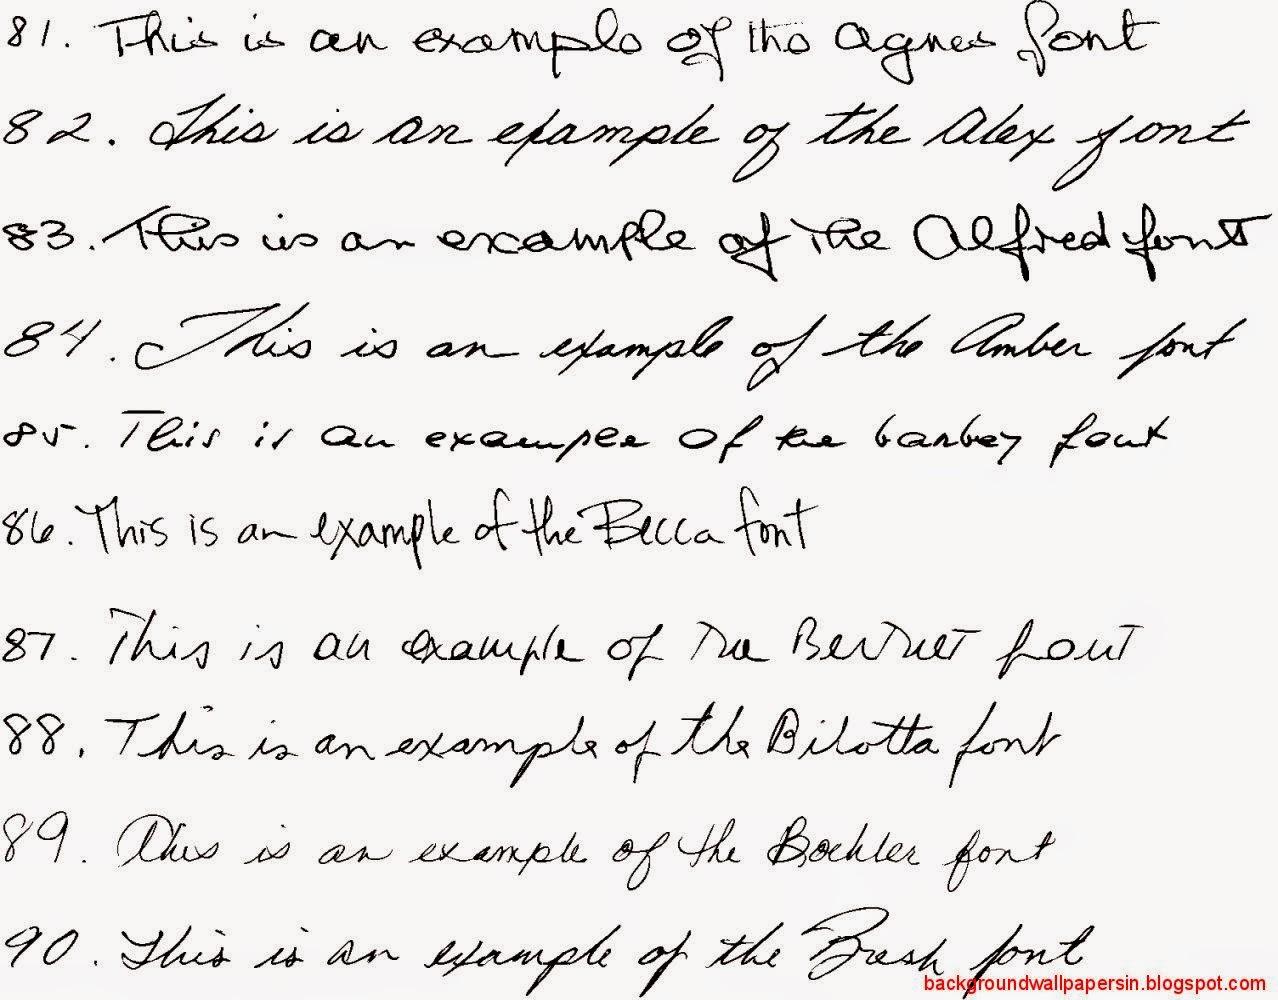 81. This is an example of the Agnes font
82. This is an example of the Alex font
83. This is an example of the Alfred font
84. This is an example of the Amber font
85. This is an example of the barbey font
86. This is an example of the Becca font
87. This is an example of the font
88. This is an example of the Bilotta font
89. This is an example of the Boehler font
90. This is an example of the font
backgroundwallpapersin.blogspot.com